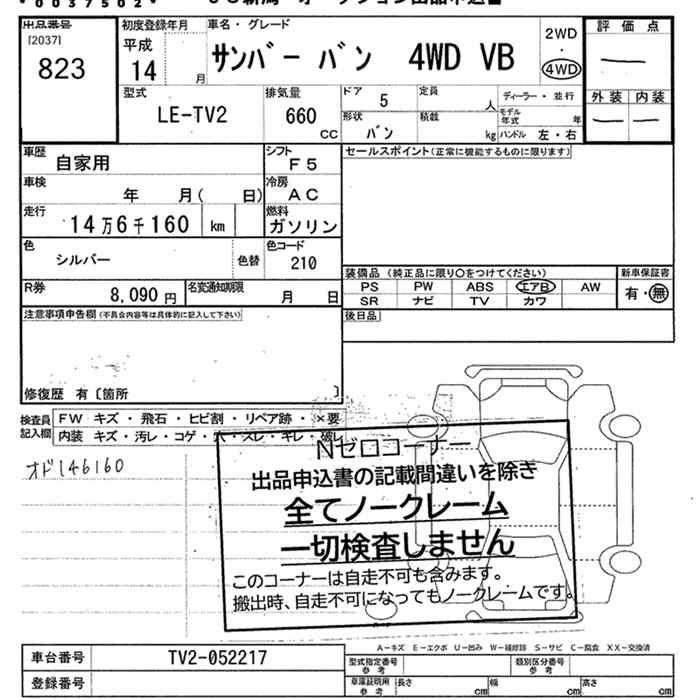 *0037502*
出品番号
[2037]
823
初度登録年月
平成
14 月
車名・グレード
サンバー バン 4WD VB
2WD
・
4WD
評価点
外装 内装
型式
LE-TV2
排気量
660
cc
ドア 5
定員 人
ディーラー・並行
形状
バン
積載 kg
モデル年式 年
ハンドル 左・右
車歴
自家用
シフト
F5
セールスポイント(正常に機能するものに限ります)
車検
年 月( 日)
冷房
AC
走行
14万6千160 km
燃料
ガソリン
色
シルバー
色替
色コード
210
装備品 (純正品に限り〇をつけてください)
新車保証書
PS PW ABS エアB AW
有・無
SR ナビ TV カワ
R券
8,090円
名変通知期限
月 日
注意事項申告欄(不具合内容等は具体的に記入して下さい)
後日品
修復歴 有〔箇所 〕
検査員
記入欄
FW キズ・飛石・ヒビ割・リペア跡・×要
内装 キズ・汚レ・コゲ・穴・スレ・キレ・破レ
オド146160
Nゼロコーナー
出品申込書の記載間違いを除き
全てノークレーム
一切検査しません
このコーナーは自走不可も含みます。
搬出時、自走不可になってもノークレームです。
A-キズ E-エクボ U-凹み W-補修跡 S-サビ C-腐食 XX-交換済
車台番号 TV2-052217
型式指定番号
参考
類別区分番号
参考
登録番号
車庫証明用
参考
長さ cm
幅 cm
高さ cm